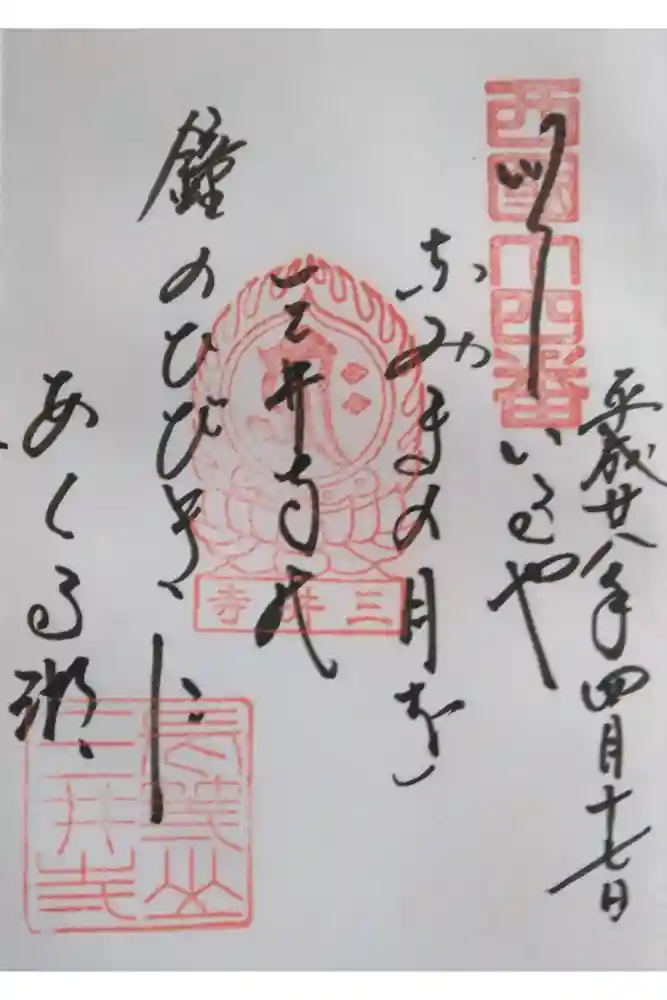 平成廿八年四月十七日
西国十四番
いでいるや
なみまの月を
三井寺の
三井寺
鐘のひびきに
あくる湖
長等山
三井寺